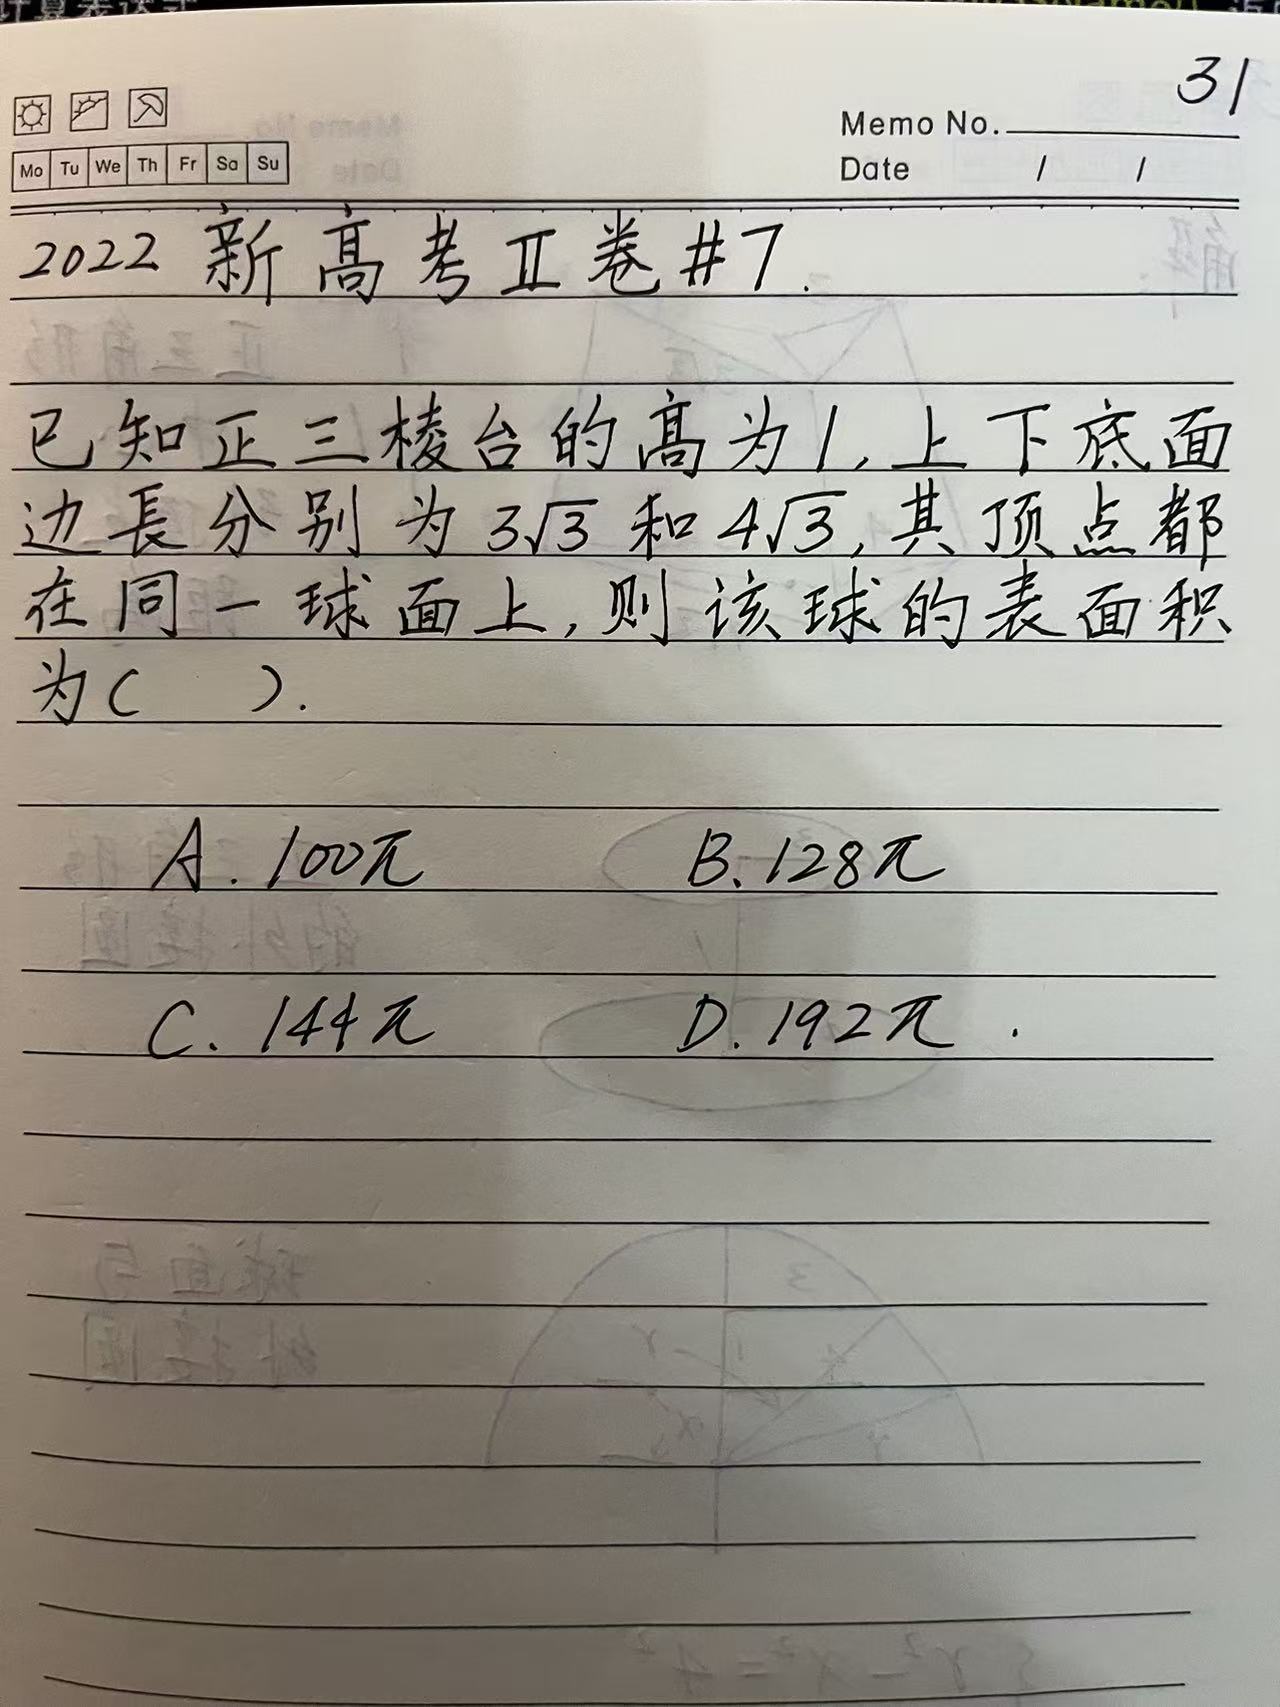 31
Memo No.
Mo Tu We Th Fr Sa Su
Date / /
2022 新高考Ⅱ卷#7.
已知正三棱台的高为1,上下底面
边長分别为3√3和4√3,其顶点都
在同一球面上,则该球的表面积
为( ).
A. 100π B. 128π
C. 144π D. 192π.